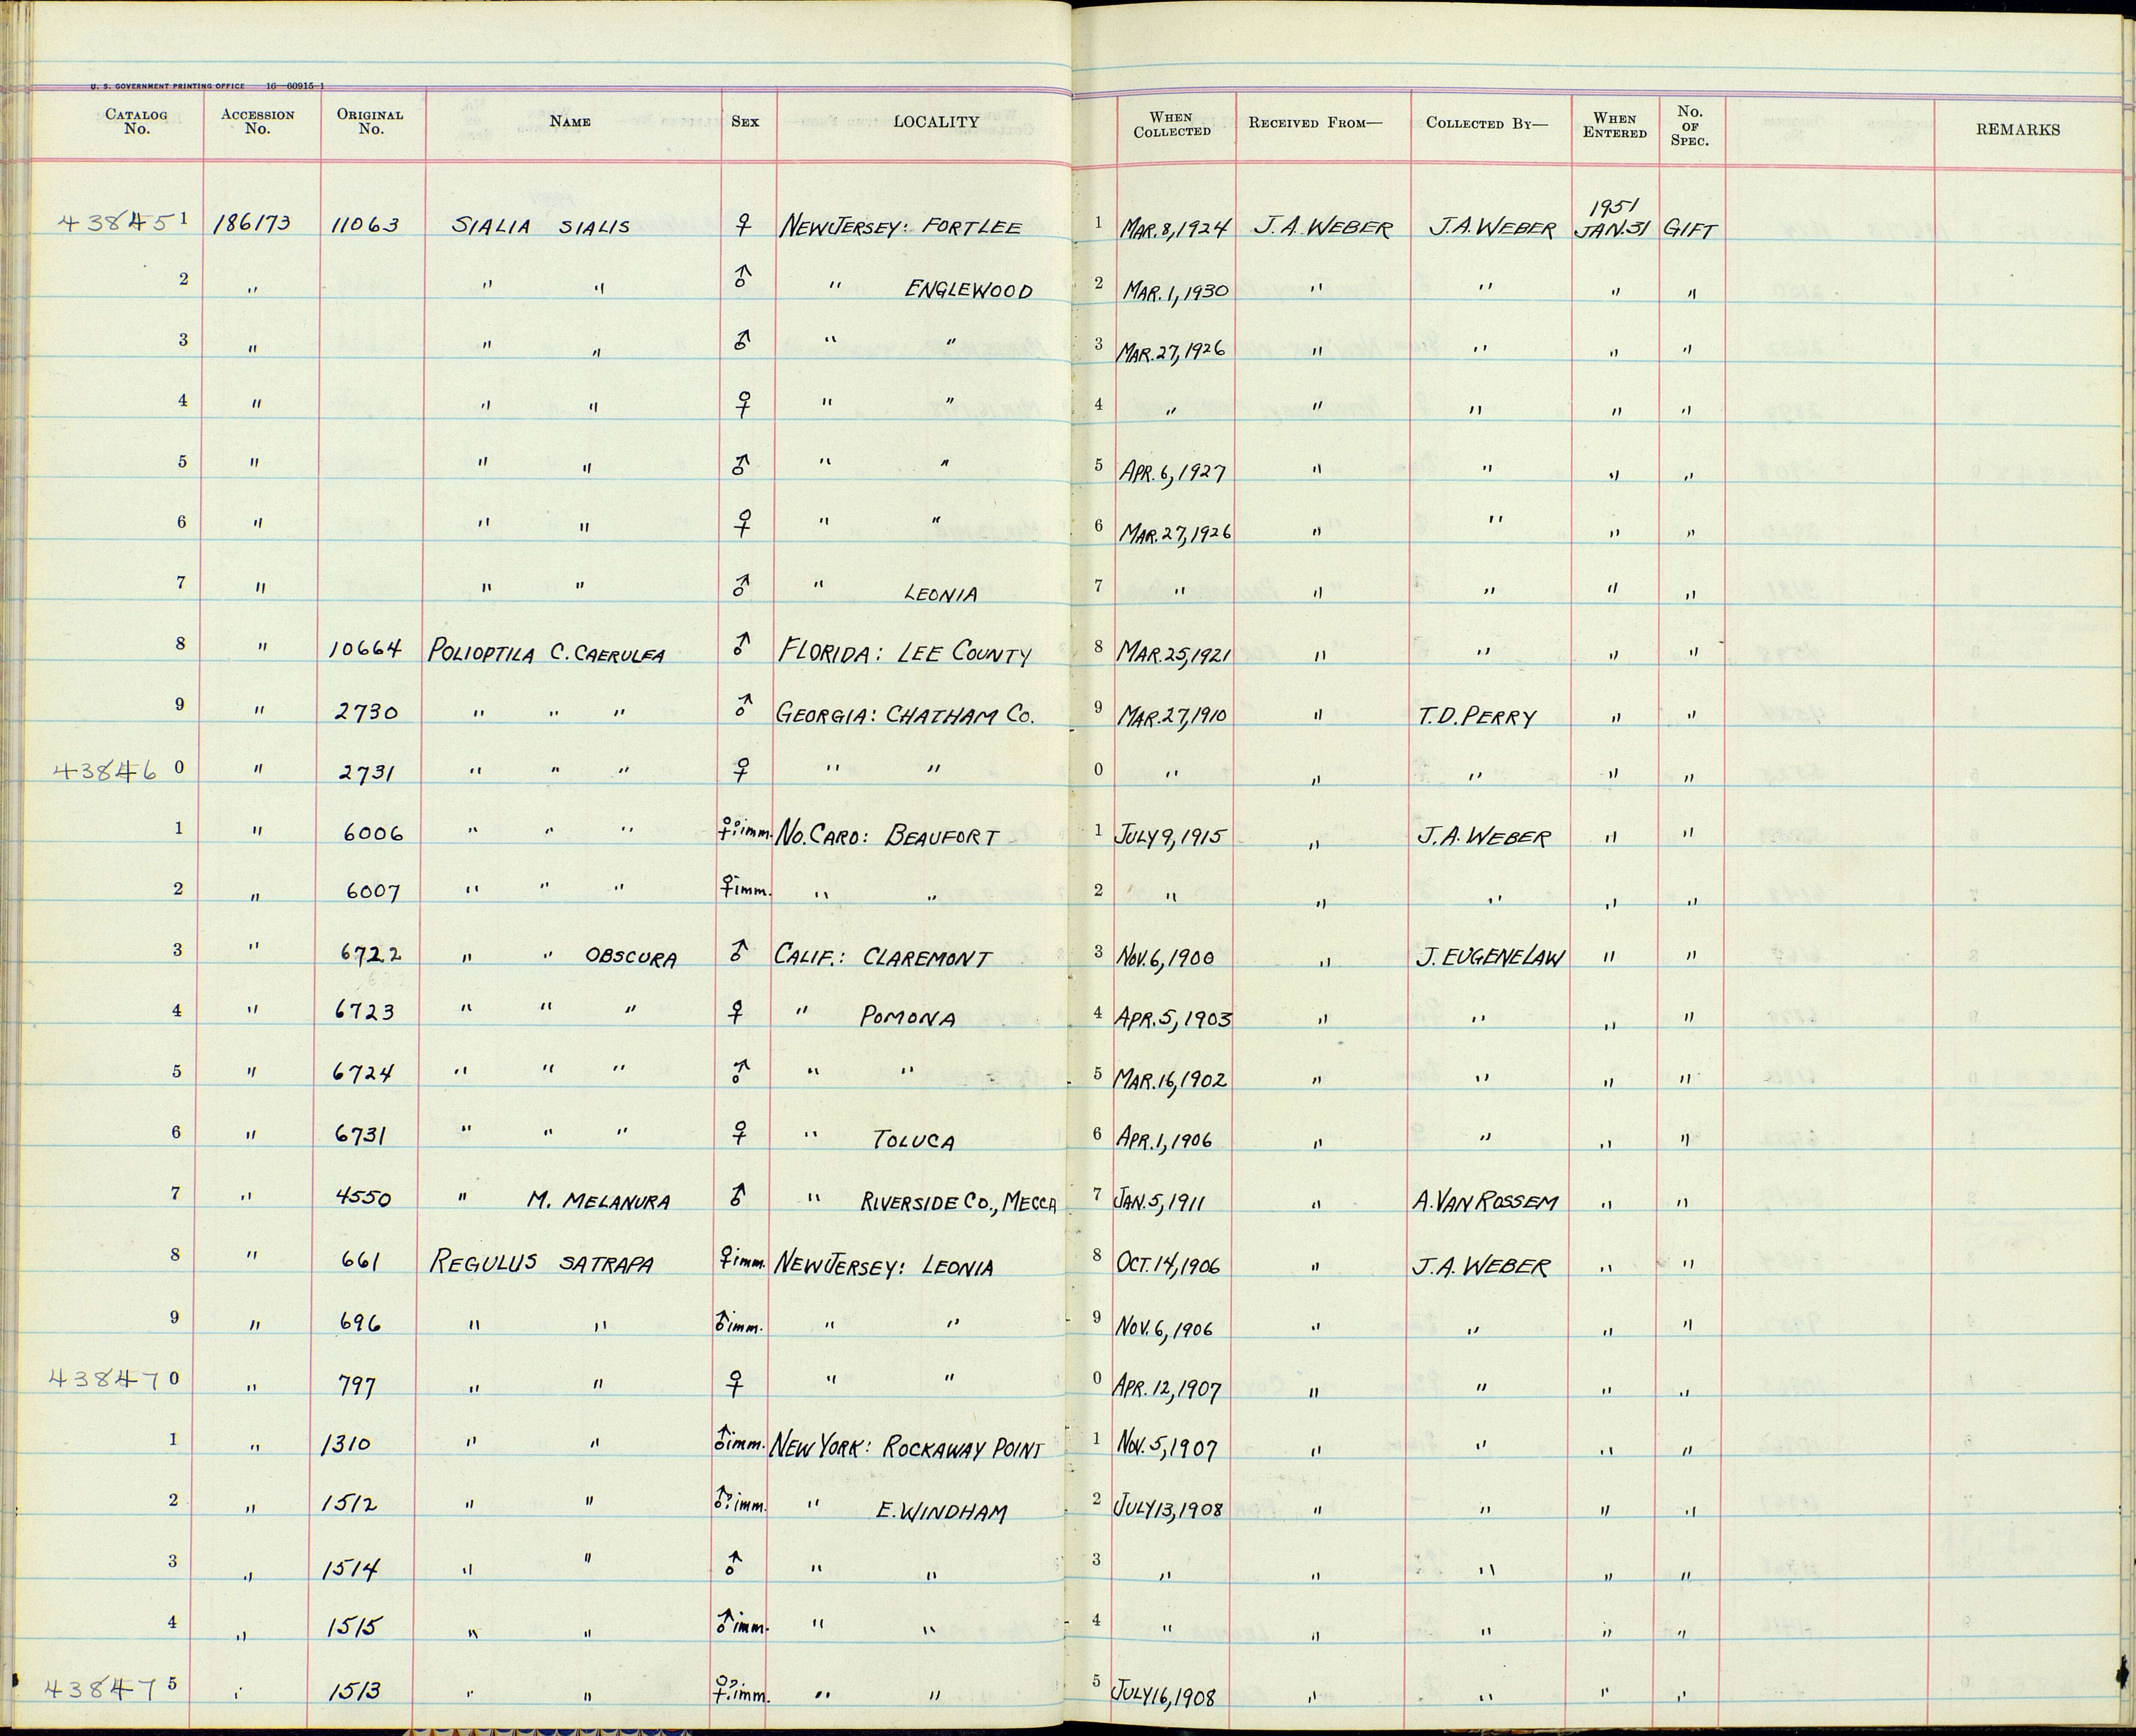 U. S. GOVERNMENT PRINTING OFFICE 16—60915-1
CATALOG No. ACCESSION No. ORIGINAL No. NAME SEX LOCALITY WHEN COLLECTED RECEIVED FROM— COLLECTED BY— WHEN ENTERED NO. OF SPEC. REMARKS
438451 186173 11063 SIALIA SIALIS ♀ NEW JERSEY: FORT LEE 1 MAR. 8, 1924 J. A. WEBER J. A. WEBER 1951 JAN. 31 GIFT
2 " " " ♂ " ENGLEWOOD 2 MAR. 1, 1930 " " " "
3 " " " ♂ " " 3 MAR. 27, 1926 " " " "
4 " " " ♀ " " 4 " " " " "
5 " " " ♂ " " 5 APR. 6, 1927 " " " "
6 " " " ♀ " " 6 MAR. 27, 1926 " " " "
7 " " " ♂ " LEONIA 7 " " " " "
8 " 10664 POLIOPTILA C. CAERULEA ♂ FLORIDA: LEE COUNTY 8 MAR. 25, 1921 " " " "
9 " 2730 " " " ♂ GEORGIA: CHATHAM CO. 9 MAR. 27, 1910 " T. D. PERRY " "
438460 " 2731 " " " ♀ " " 0 " " " " "
1 " 6006 " " " ♀? imm. NO. CARO: BEAUFORT 1 JULY 9, 1915 " J. A. WEBER " "
2 " 6007 " " " ♀ imm. " " 2 " " " " "
3 " 6722 " " OBSCURA ♂ CALIF.: CLAREMONT 3 NOV. 6, 1900 " J. EUGENE LAW " "
4 " 6723 " " " ♀ " POMONA 4 APR. 5, 1903 " " " "
5 " 6724 " " " ♂ " " 5 MAR. 16, 1902 " " " "
6 " 6731 " " " ♀ " TOLUCA 6 APR. 1, 1906 " " " "
7 " 4550 " M. MELANURA ♂ " RIVERSIDE CO., MECCA 7 JAN. 5, 1911 " A. VAN ROSSEM " "
8 " 661 REGULUS SATRAPA ♀ imm. NEW JERSEY: LEONIA 8 OCT. 14, 1906 " J. A. WEBER " "
9 " 696 " " ♂ imm. " " 9 NOV. 6, 1906 " " " "
438470 " 797 " " ♀ " " 0 APR. 12, 1907 " " " "
1 " 1310 " " ♂ imm. NEW YORK: ROCKAWAY POINT 1 NOV. 5, 1907 " " " "
2 " 1512 " " ♂? imm. " E. WINDHAM 2 JULY 13, 1908 " " " "
3 " 1514 " " ♂ " " 3 " " " " "
4 " 1515 " " ♂ imm. " " 4 " " " " "
438475 " 1513 " " ♀? imm. " " 5 JULY 16, 1908 " " " "